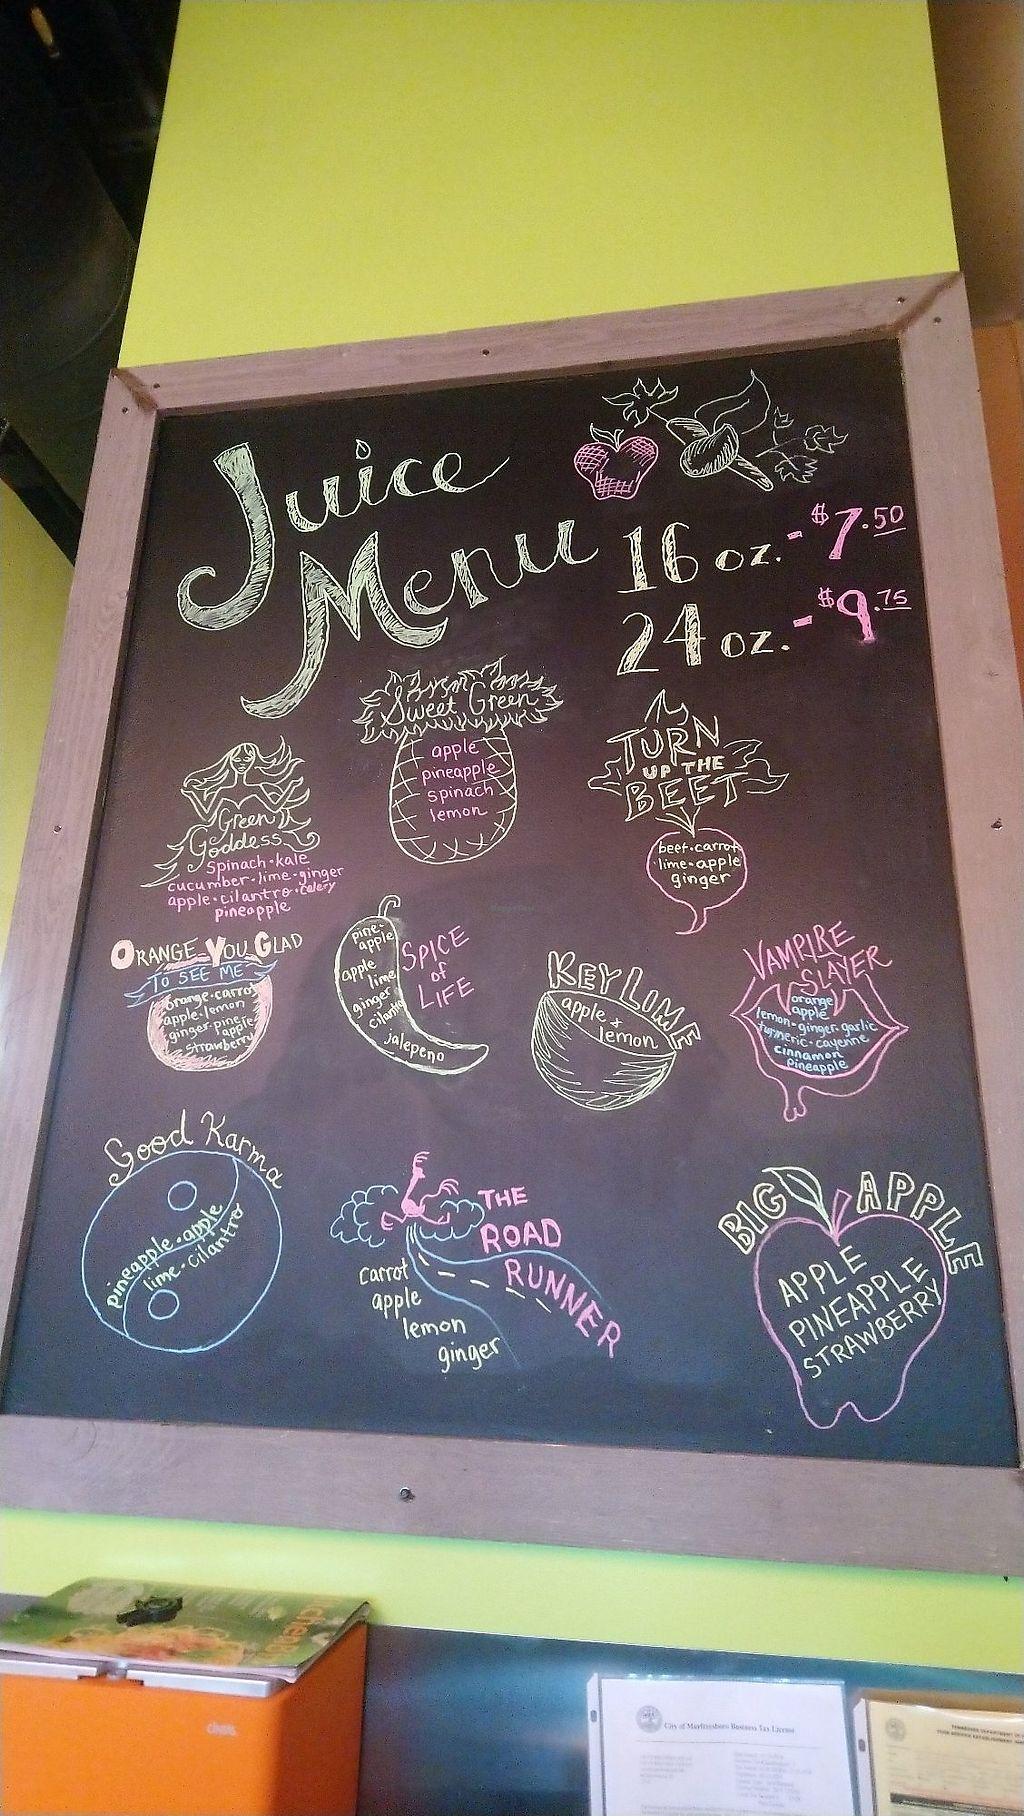 Juice
Menu
16 oz. - $7.50
24 oz. - $9.75
Sweet Green
apple
pineapple
spinach
lemon
TURN
UP THE
BEET
beet · carrot
lime · apple
ginger
Green
Goddess
Spinach · kale
cucumber · lime · ginger
apple · cilantro · celery
pineapple
ORANGE YOU GLAD
TO SEE ME
orange · carrot
apple · lemon
ginger · pine
apple
strawberry
SPICE
of
LIFE
pine-
apple
apple
lime
ginger
cilantro
jalepeno
KEY LIME
apple &
lemon
VAMPIRE
SLAYER
orange
apple
lemon · ginger · garlic
turmeric · cayenne
cinnamon
pineapple
Good Karma
pineapple · apple
lime · cilantro
THE
ROAD
RUNNER
carrot
apple
lemon
ginger
BIG APPLE
APPLE
PINEAPPLE
STRAWBERRY
City of Murfreesboro Business Tax License